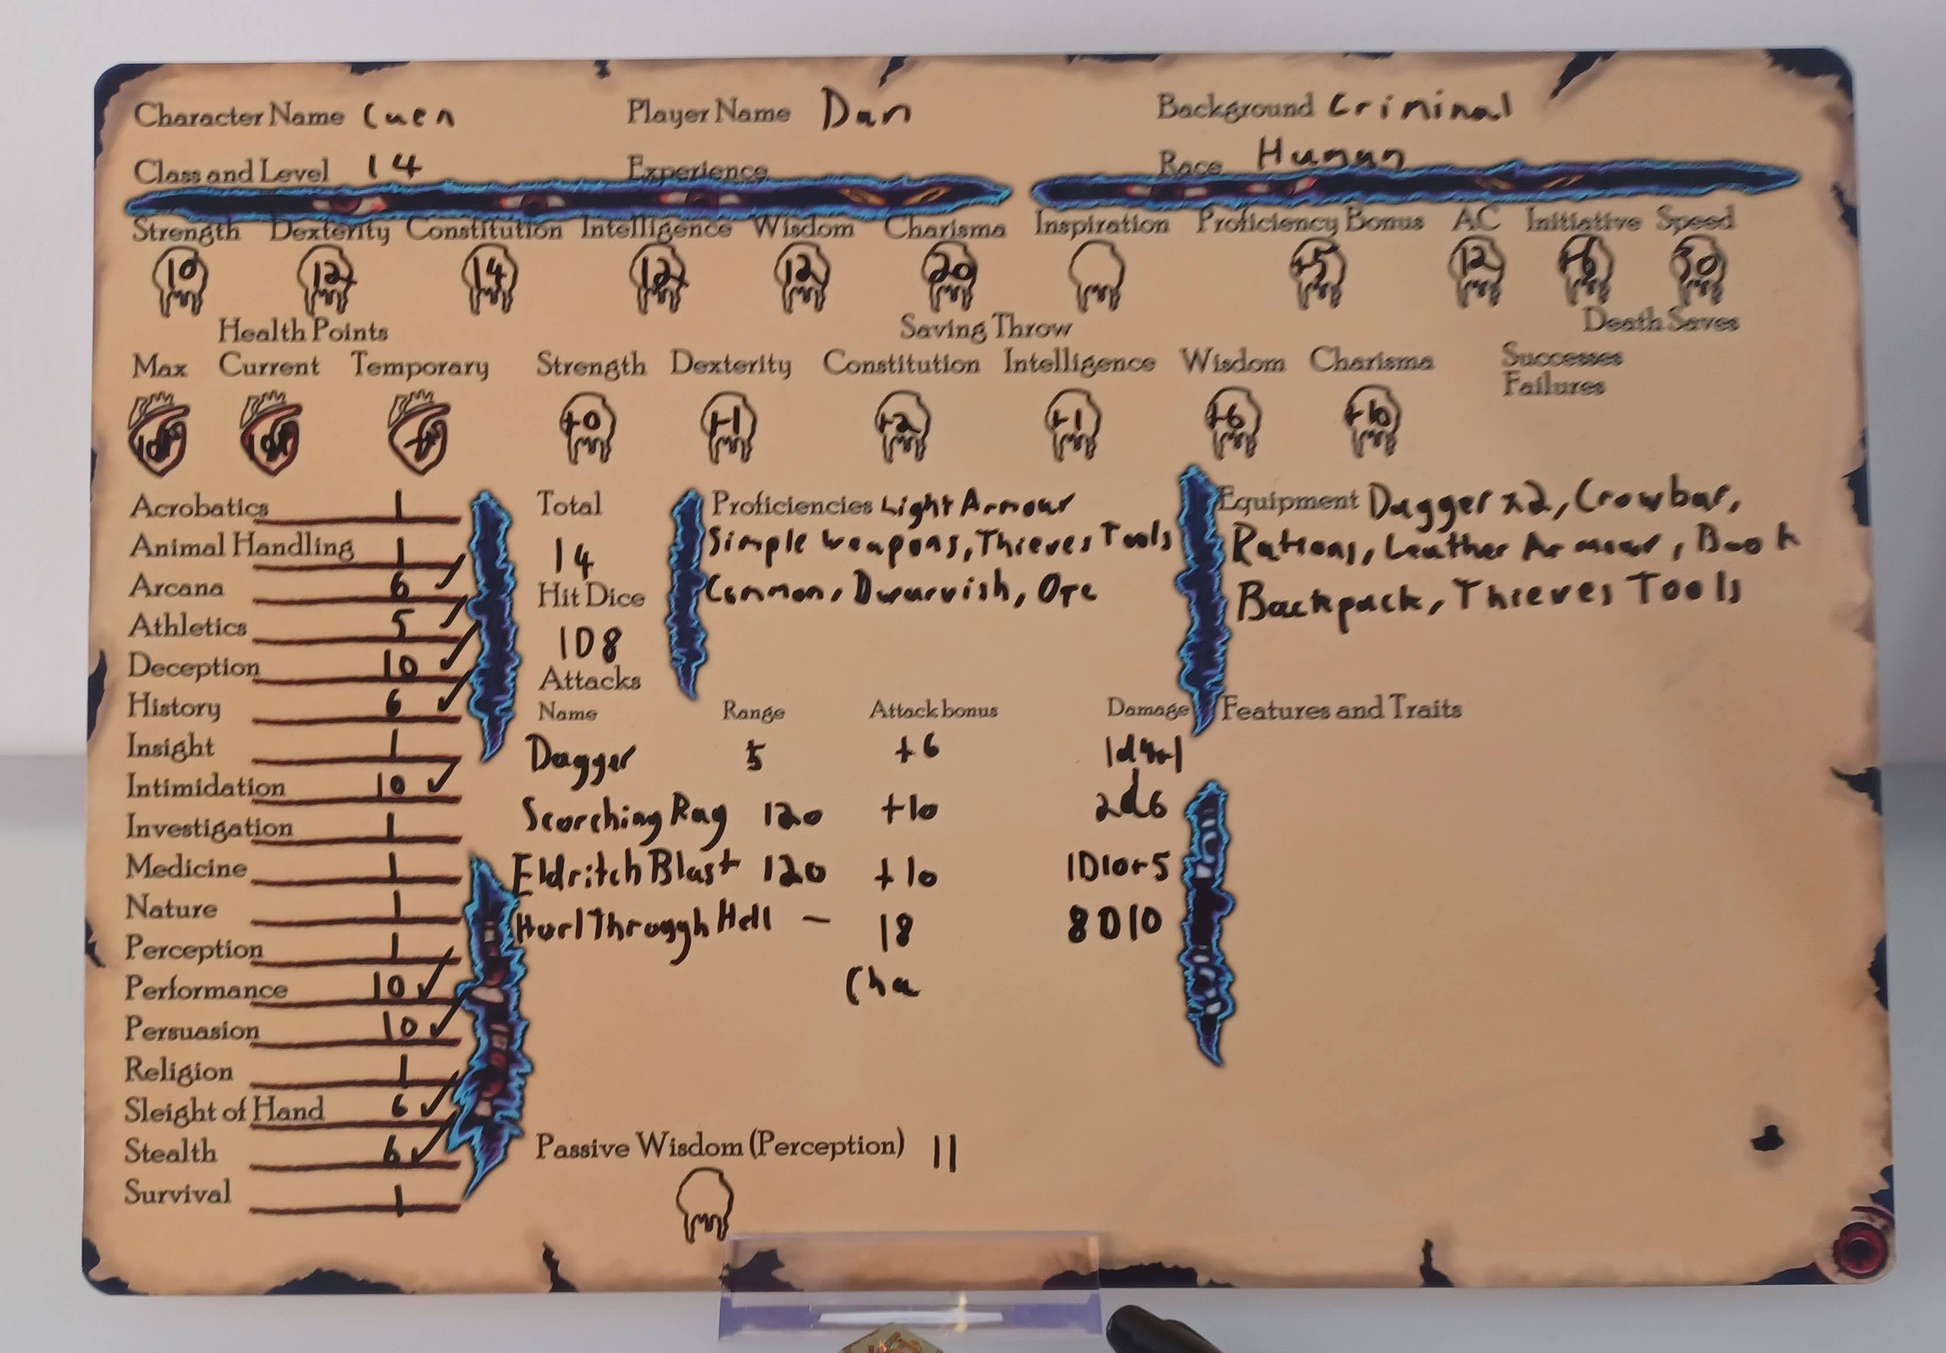 Character Name Cuen Player Name Dan Background Criminal
Class and Level 14 Experience Race Human
Strength Dexterity Constitution Intelligence Wisdom Charisma Inspiration Proficiency Bonus AC Initiative Speed
10 12 14 12 12 20 +5 12 +6 30
Health Points Saving Throw Death Saves
Max Current Temporary Strength Dexterity Constitution Intelligence Wisdom Charisma Successes
Failures
+0 +1 +2 +1 +6 +10
Acrobatics 1
Animal Handling 1
Arcana 6 ✓
Athletics 5 ✓
Deception 10 ✓
History 6 ✓
Insight 1
Intimidation 10 ✓
Investigation 1
Medicine 1
Nature 1
Perception 1
Performance 10 ✓
Persuasion 10 ✓
Religion 1
Sleight of Hand 6 ✓
Stealth 6 ✓
Survival 1
Total
14
Hit Dice
1D8
Proficiencies Light Armour
Simple weapons, Thieves Tools
Common, Dwarvish, Orc
Equipment Dagger x2, Crowbar,
Rations, Leather Armour, Book
Backpack, Thieves Tools
Attacks
Name Range Attack bonus Damage
Dagger 5 +6 1d4+1
Scorching Ray 120 +10 2d6
Eldritch Blast 120 +10 1D10+5
Hurl Through Hell — 18 8D10
Cha
Features and Traits
Passive Wisdom (Perception) 11